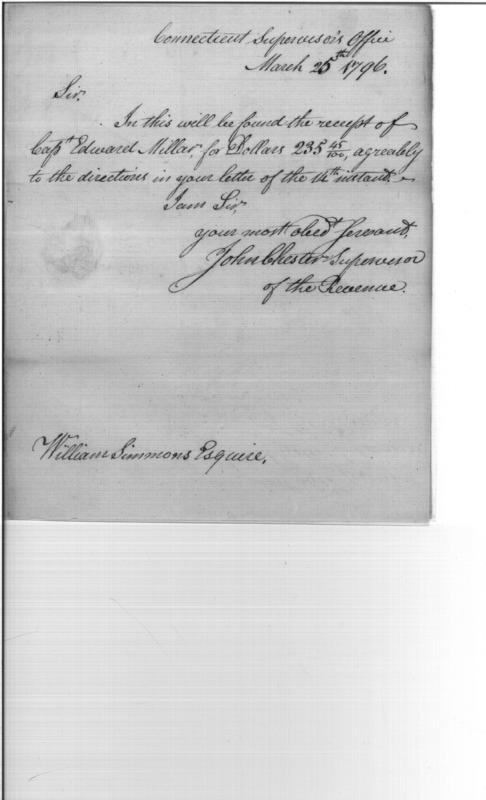 Connecticut Supervisor's Office
March 25th 1796.
Sir.
In this will be found the receipt of
Capt Edward Millar, for Dollars 235 45/100, agreably
to the directions in your letter of the 14th instant.
I am Sir,
your most obedt servant,
John Chester Supervisor
of the Revenue.
William Simmons Esquire.